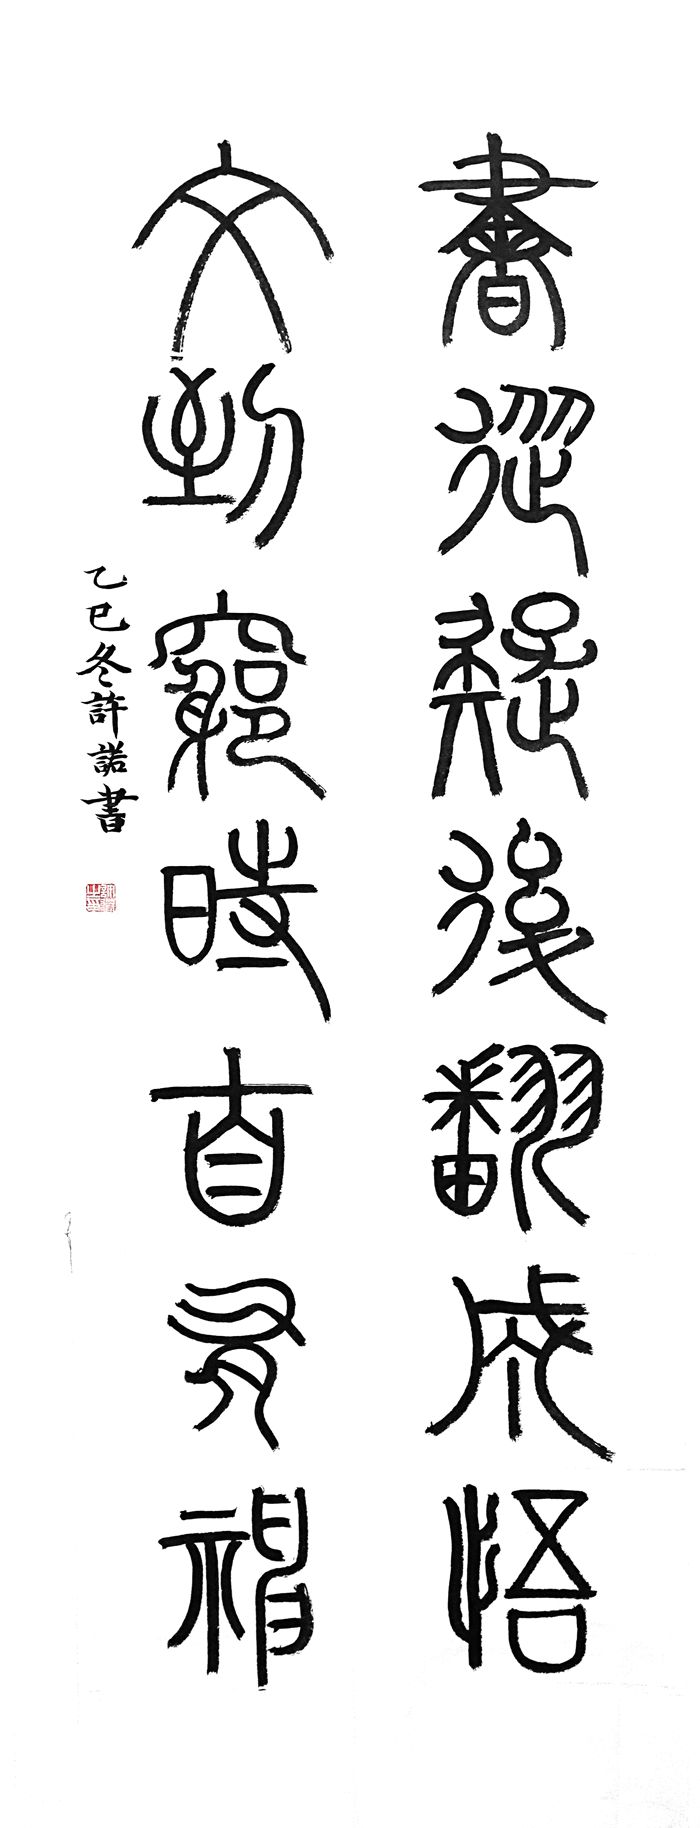 書從疑後翻成悟
文到窮時自有神
乙巳冬許諾書